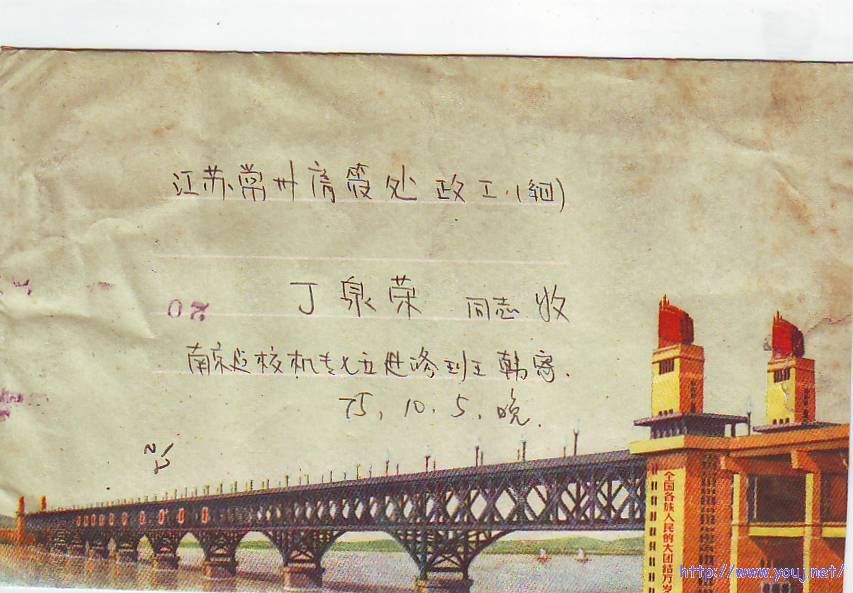 江苏常州房管处政工(组)
丁泉荣 同志收
20
南京 校机专七五进修班王韩寄.
75. 10. 5. 晚.
全国各族人民的大团结万岁
http://www.youj.net/